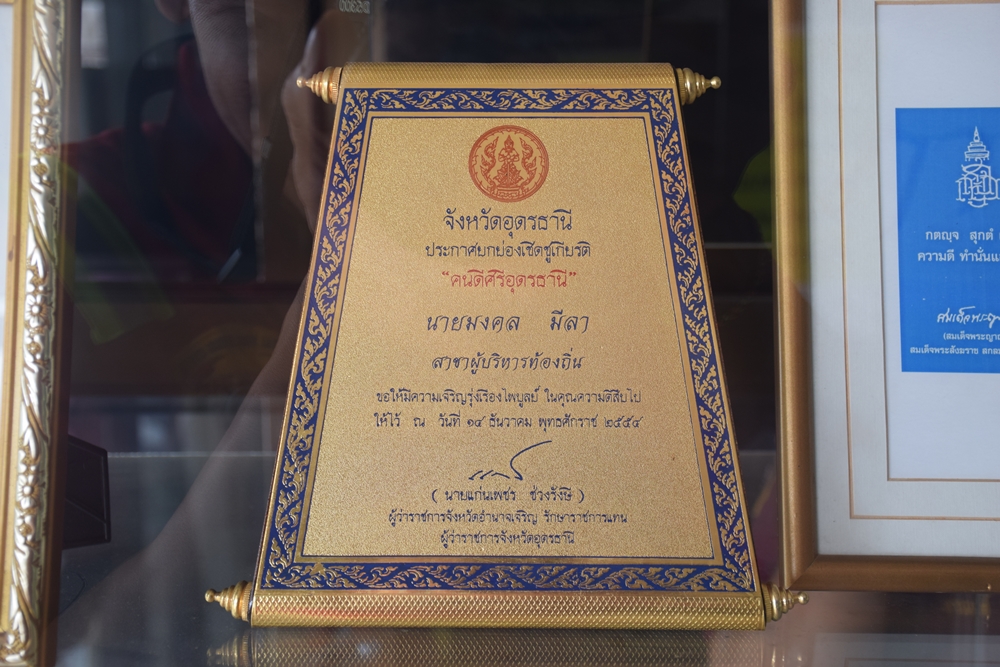 จังหวัดอุดรธานี
ประกาศยกย่องเชิดชูเกียรติ
"คนดีศรีอุดรธานี"
นายมงคล มีลา
สาขาผู้บริหารท้องถิ่น
ขอให้มีความเจริญรุ่งเรืองไพบูลย์ ในคุณความดีสืบไป
ให้ไว้ ณ วันที่ ๑๔ ธันวาคม พุทธศักราช ๒๕๕๔
( นายแก่นเพชร ช่วงรังษี )
ผู้ว่าราชการจังหวัดอำนาจเจริญ รักษาราชการแทน
ผู้ว่าราชการจังหวัดอุดรธานี
กตญฺจ สุกตํ
ความดี ทำนั่นแ
(สมเด็จพระญา
สมเด็จพระสังฆราช สกล